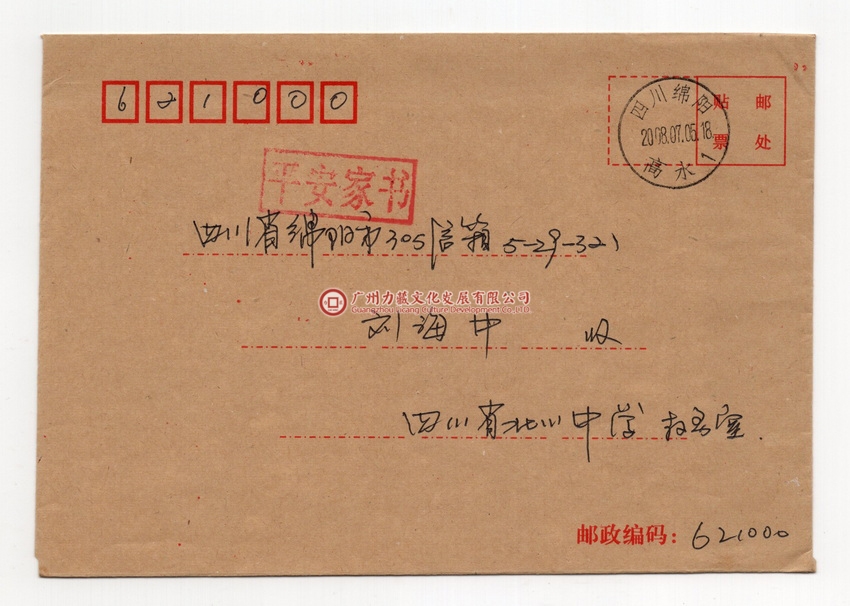 621000
贴 邮
票 处
四川绵阳
2008.07.05.18
高水 1
平安家书
四川省绵阳市305信箱 5-29-321
广州力藏文化发展有限公司
Guangzhou Licang Culture Development Co.,LTD.
刘海中 收
四川省北川中学 校长室
邮政编码：621000